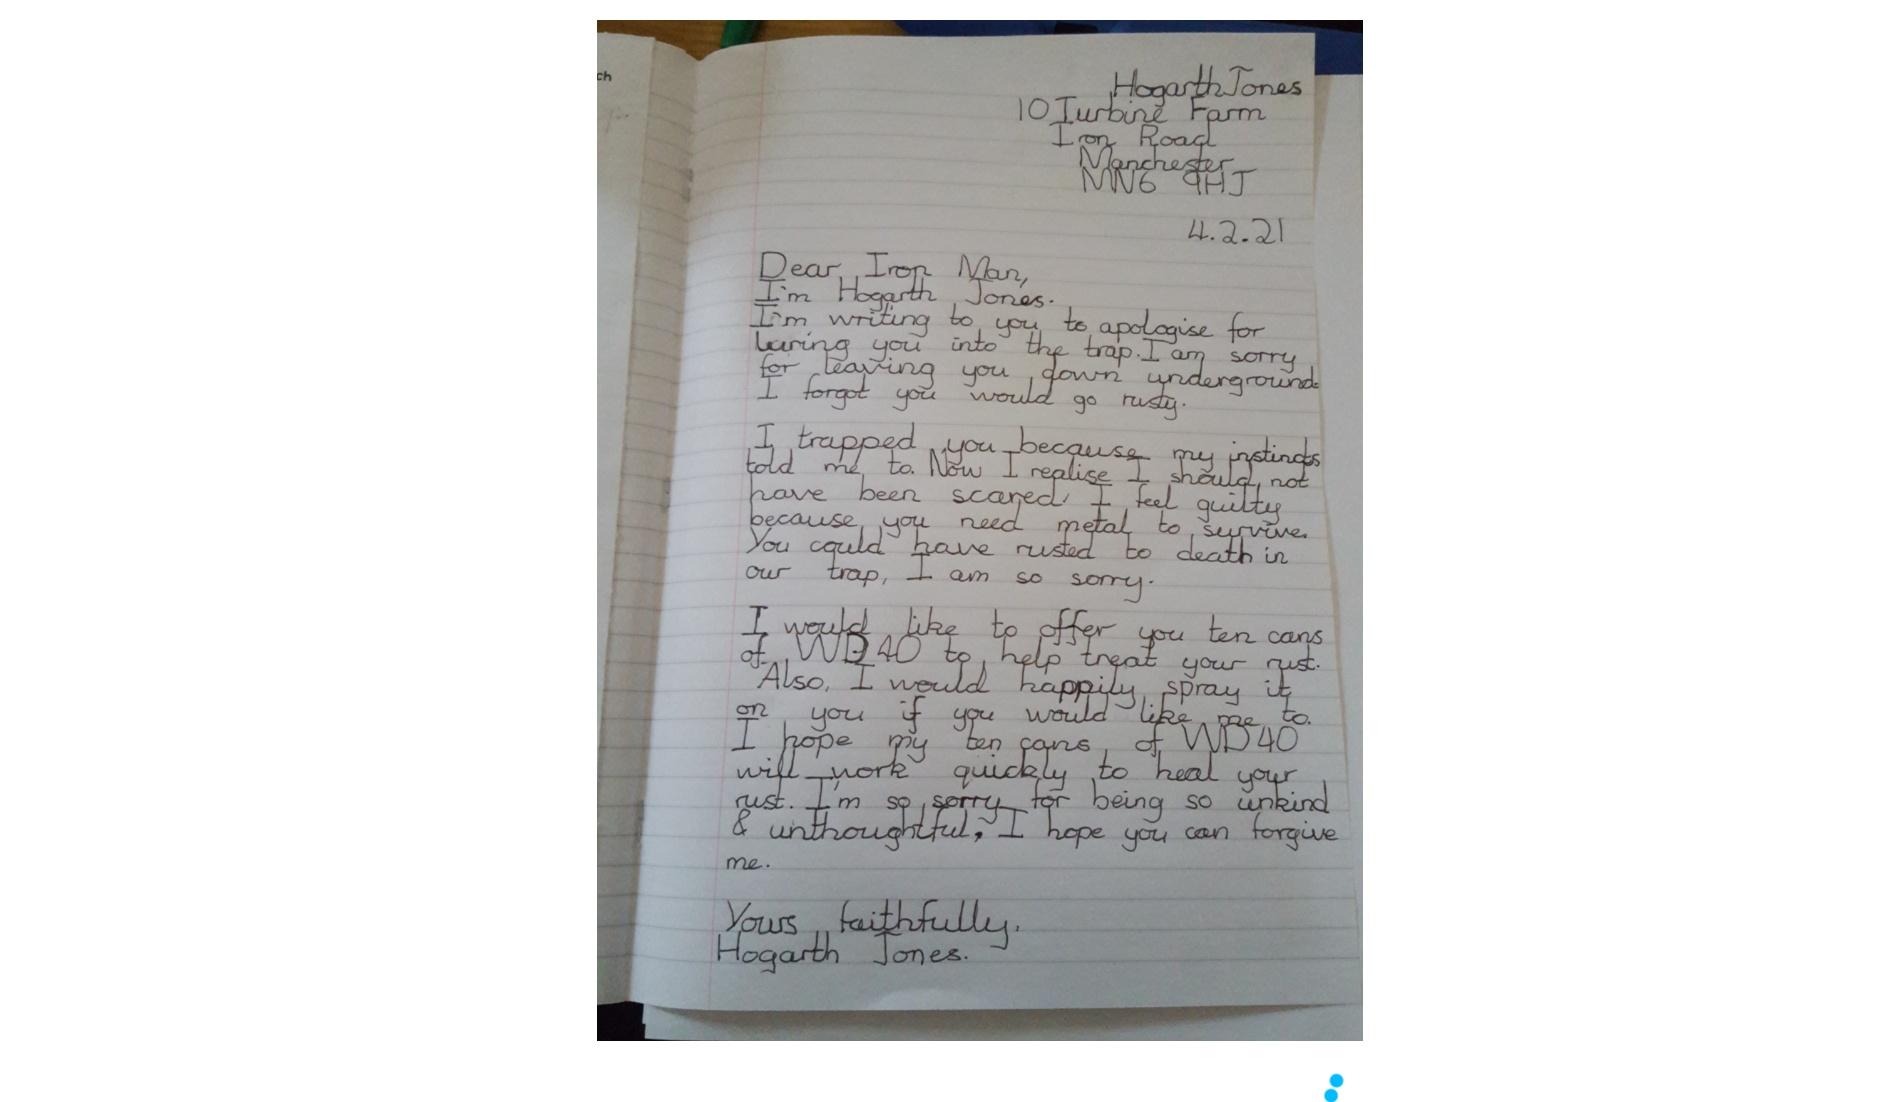 ch
Hogarth Jones
10 Turbine Farm
Iron Road
Manchester
MN6 9HJ
4.2.21
Dear Iron Man,
I'm Hogarth Jones.
I'm writing to you to apologise for
luring you into the trap. I am sorry
for leaving you down underground.
I forgot you would go rusty.
I trapped you because my instincts
told me to. Now I realise I should not
have been scared. I feel guilty
because you need metal to survive.
You could have rusted to death in
our trap, I am so sorry.
I would like to offer you ten cans
of WD40 to help treat your rust.
Also, I would happily spray it
on you if you would like me to.
I hope my ten cans of WD40
will work quickly to heal your
rust. I'm so sorry for being so unkind
& unthoughtful, I hope you can forgive
me.
Yours faithfully,
Hogarth Jones.